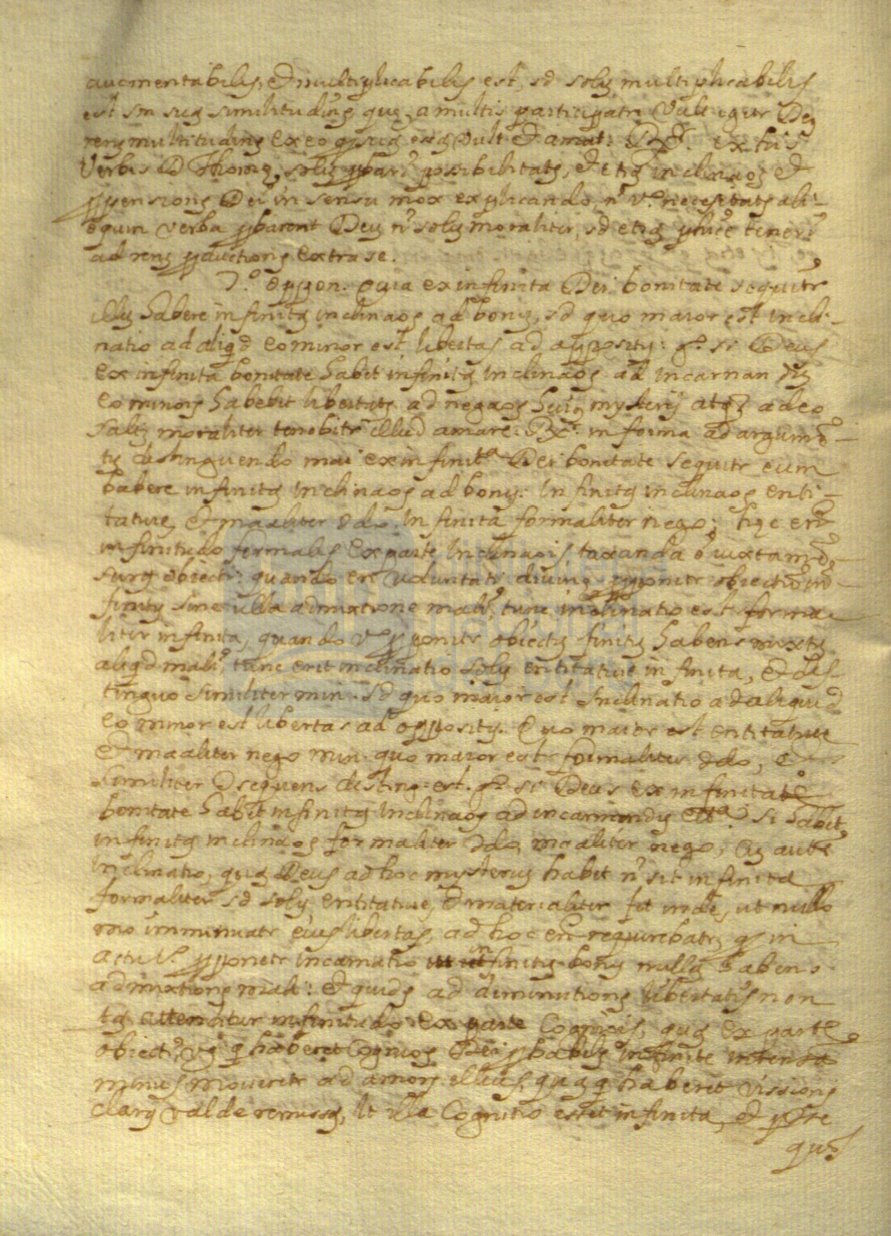 augmentabilis, et multiplicabilis est, sd solũ multiplicabilis
est sm̃ suã similitudinẽ quæ a multis participatr. Vult igitr Deg
rerũ multitudinẽ ex eo qd suã eẽ vult et amat. Rr. ex his
verbis D Thomę, solũ possibilitatẽ, et etiã inclinaoẽ, et
propensionẽ Dei in sensu mox explicando, nõ vº necessitatẽ ali-
oquin verba probarent Deũ nõ solũ moraliter, sd etiã phicẽ teneri
ad rerũ productionẽ extra se.
7.º oppon. quia ex infinita Dei bonitate sequitr
illũ habere infinitã inclinaoẽ ad bonũ, sd quo maior est incli-
natio ad aliqd eo minor est libertas ad oppositũ: gº si Deus
ex infinita bonitate habet infinitã inclinaoẽ ad incarnandũ
eo minorẽ habebit libertatẽ ad negaoẽ huiũ mysterij atqʒ adeo
saltẽ moraliter tenebitr illud amare: Rr. in forma ad argumẽ-
tũ distinguendo mai. ex infinita Dei bonitate sequitr eum
habere infinitã inclinaoẽ ad bonũ: infinitã inclinaoẽ enti-
tative, et maaliter cdo, infinitã formaliter nego; hęc enĩ
infinitudo formalis ex parte inclinaois taxanda ẽ iuxta mẽ-
surã obiecti: quando enĩ voluntati divinę proponitr obiectũ in-
finitũ sine ulla admixtione mali, tunc inclinatio est forma-
liter infinita, quando vº proponitr obiectũ finitũ habens mixtũ
aliqd mali, tunc erit inclinatio solũ entitative infinita, et dis-
tinguo similiter min. sd quo maior est inclinatio ad aliquid
eo minor est libertas ad oppositũ. Quo maior est entitative
et maaliter nego min. quo maior est formaliter cdo, et
similiter consequens disting. est. gº si Deus ex infinita
bonitate habet infinitã inclinaoẽ ad incarnandũ etta. si habet
infinitã inclinaoẽ formaliter cdo, maaliter nego, cũ autẽ
inclinatio, quã Deus ad hoc mysteriũ habet nõ sit infinita
formaliter sd solũ entitative, et materialiter fit inde, ut nullo
mº imminuatr eius libertas, ad hoc enĩ requirebatr, qd in
actu 1º proponeretr incarnatio ut infinitũ bonũ nullã habens
admixtionẽ mali: et quidẽ ad diminutionẽ libertatis non
tã attenditur infinitudo ex parte cognitiois, quã ex parte
obiecti, vg q haberet cognitioẽ Dei probabilẽ infinite intensã
minus moveretr ad amorẽ illius, quã q haberet vissionẽ
clarã valde remissã, lt illa cognitio esset infinita, et
quod